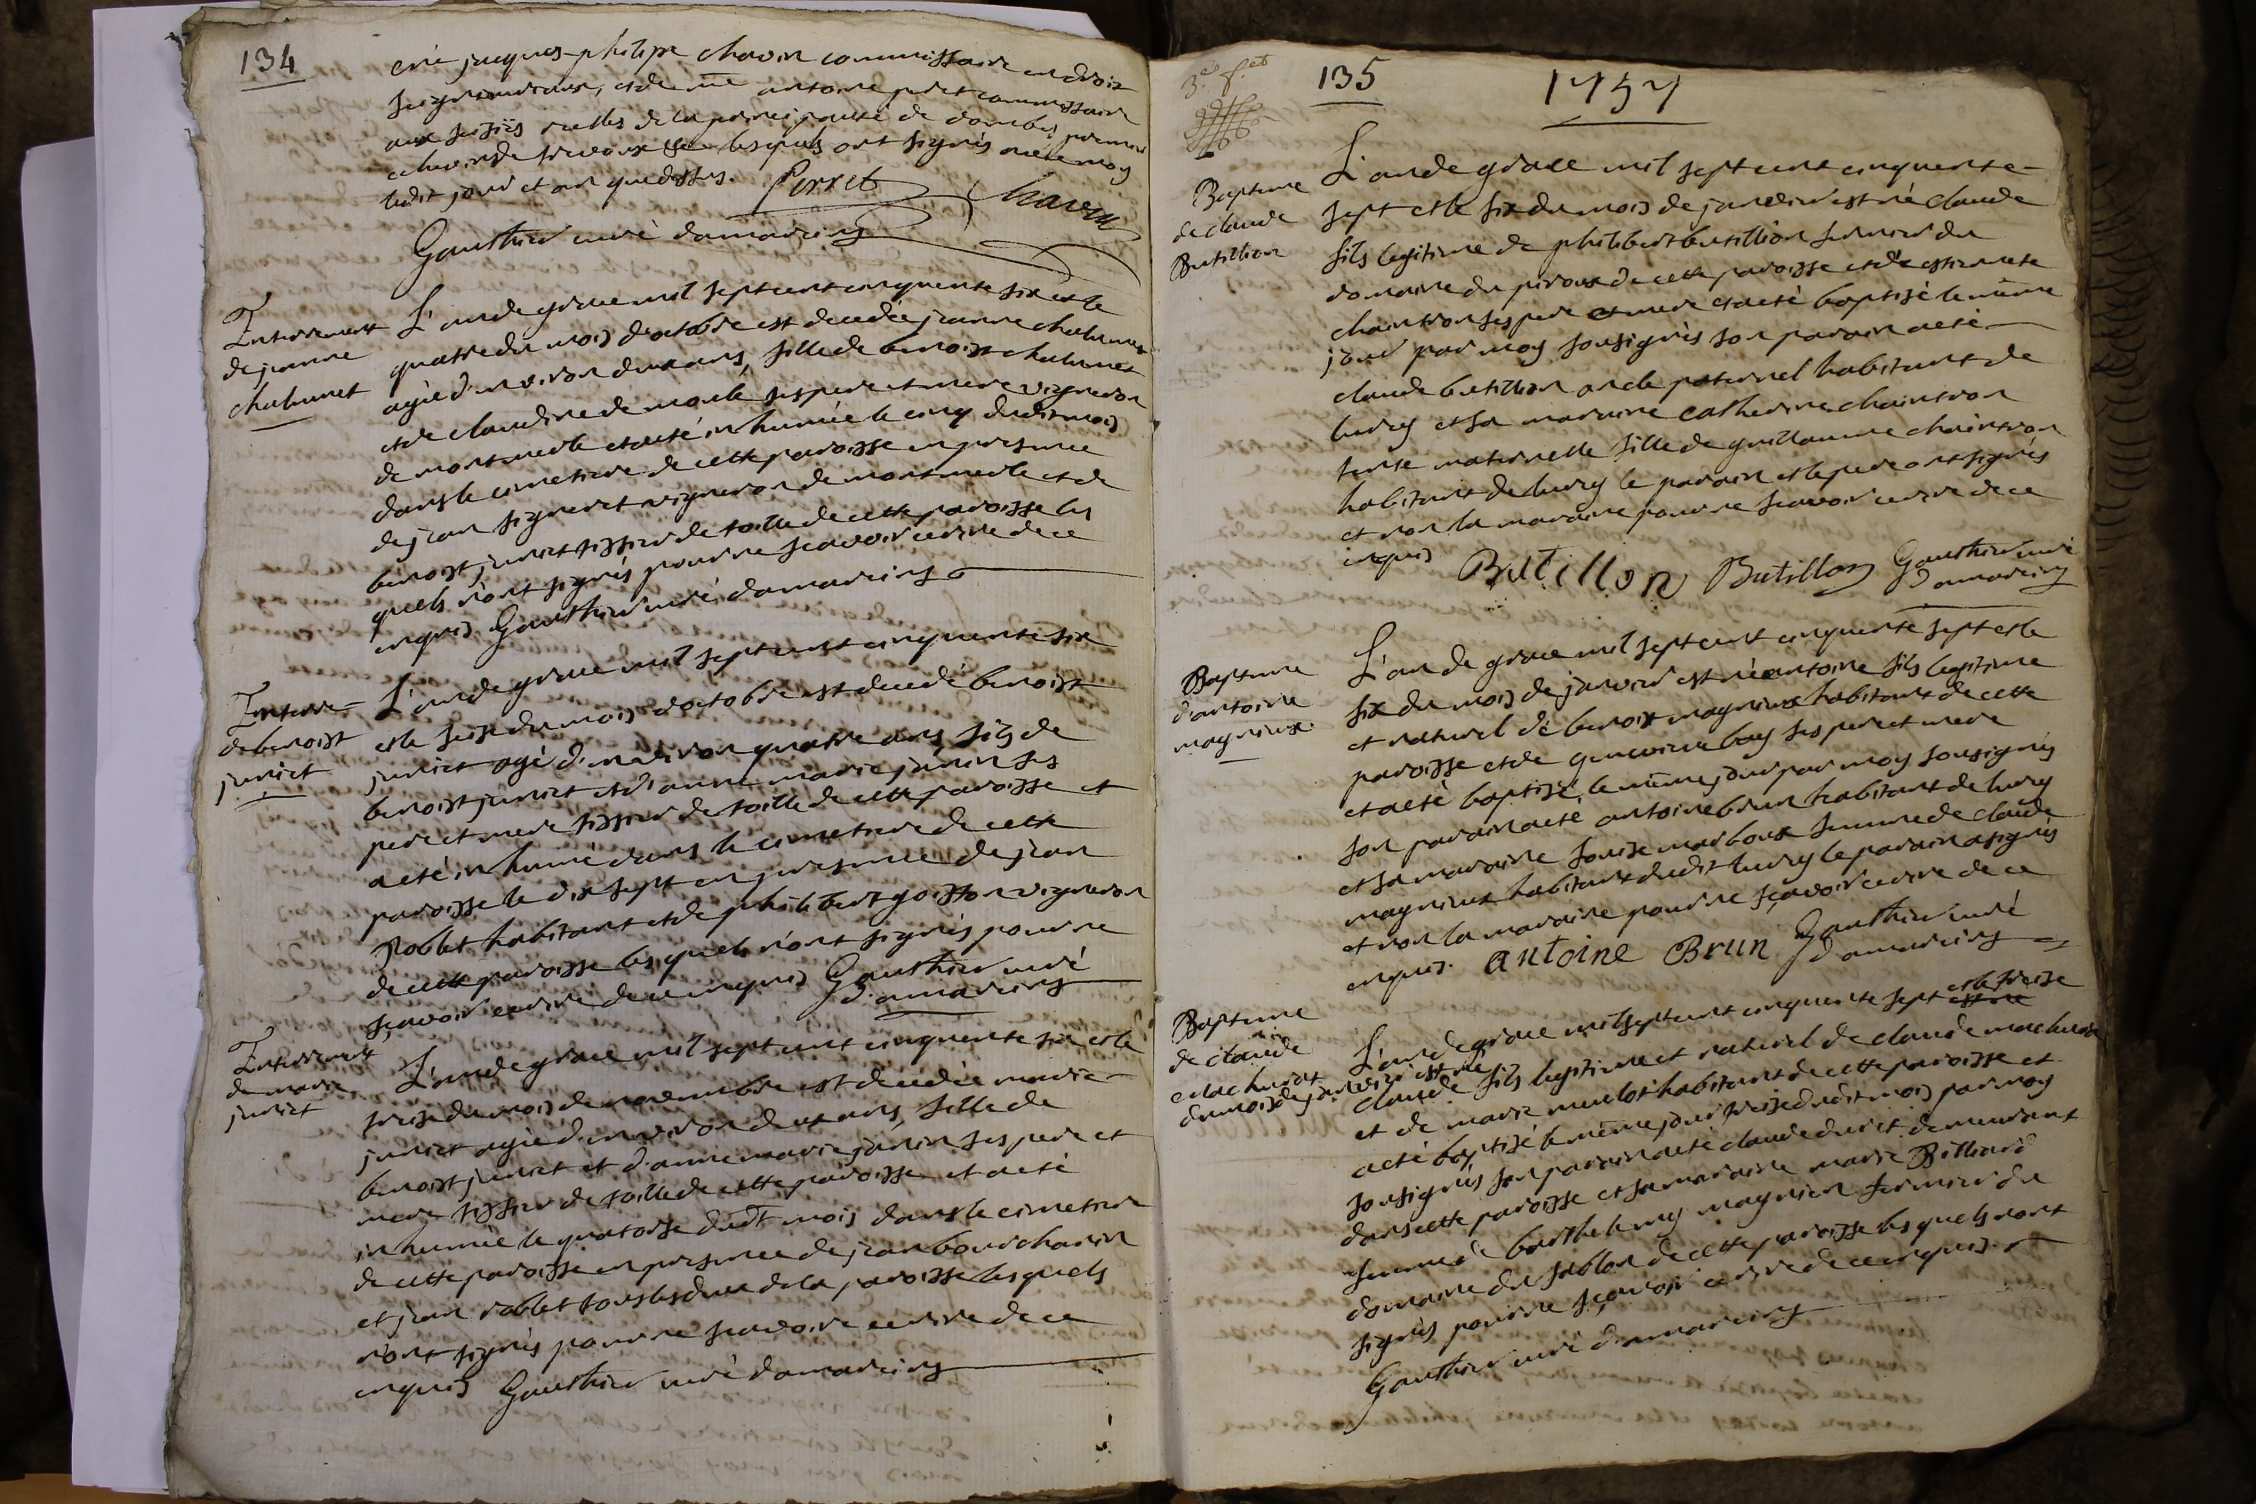 134
jacques philipe chavin commissaire en droix
seigneuriaux, et de me antoine perret commissaire
aux saisies reelles de la principauté de dombes
de trevoux lesquels ont signés avec moy
ledit jour et an que dessus. Perret Chavin
Gauthier curé damareins
Enterrement
de jeanne
chalumet
L'an de grace mil sept cent cinquante six et le
quatre du mois d'octobre est decedée jeanne chalumet
agée d'environ deux ans, fille de benoist chalumet
et de claudine de ses pere et mere vigneron
de montmerle et a été inhumée le cinq dudit mois
dans le cimetiere de cette paroisse en presence
de jean signeret vigneron de montmerle et de
benoist juniet tissier de toille de cette paroisse les
quels n'ont signés pour ne scavoir ecrire de ce
enquis Gauthier curé damareins
Enterre-
de benoist
juniet
L'an de grace mil sept cent cinquante six
et le seise du mois d'octobre est decedé benoist
juniet agé d'environ quatre ans, fils de
benoist juniet et d'anne marie janin ses
pere et mere tissier de toille de cette paroisse et
a eté inhumé dans le cimetiere de cette
paroisse le dix sept en presence de jean
Roblet habitant et de philibert goisson vigneron
de cette paroisse les quels n'ont signés pour ne
scavoir ecrire de ce enquis Gauthier curé
d'amareins
Enterrement
de marie
juniet
L'an de grace mil sept cent cinquante six et le
treise du mois de novembre est decedée marie
juniet agée d'environ deux ans, fille de
benoist juniet et d'anne marie janin ses pere et
mere tissier de toille de cette paroisse et a eté
inhumée le quatorse dudt mois dans le cimetiere
de cette paroisse en presence de jean bourchanin
et jean roblet tous les deux de la paroisse lesquels
n'ont signés pour ne scavoir ecrire de ce
enquis Gauthier curé damareins
135
1757
Bapteme
de claude
Butillion
L'an de grace mil sept cent cinquante-
sept et le six du mois de janvier est né claude
fils legitime de philibert butillion fermier du
domaine du piroux de cette paroisse et d'estiennete
chaintron ses pere et mere et a eté baptisé le même
jour par moy sousignés son parain a eté
claude butillion oncle paternel habitant de
lurcy et sa maraine catherine chaintron
tante maternelle fille de guillaume chaintron
habitant de lurcy le parain et le pere ont signés
et non la maraine pour ne scavoir ecrire de ce
enquis Butillon Butillon Gauthier curé
Damareins
Bapteme
d'antoine
magnieux.
L'an de grace mil sept cent cinquante sept et le
six du mois de janvier est né antoine fils legitime
et naturel de benoist magnieux habitant de cette
paroisse et de genevieve bay ses pere et mere
et a eté baptisé le même jour par moy sousignés
son parain a eté antoine brun habitant de lurcy
et sa maraine louise marboux femme de claude
magnieux habitant dudit lurcy le parain a signés
et non la maraine pour ne scavoir ecrire de ce
enquis. antoine Brun Gauthier curé
D'amareins
Bapteme
de claude
L'an de grace mil sept cent cinquante sept et le treise
du mois de janvier est né
claude fils legitime et naturel de claude
et de marie merlot habitant de cette paroisse et
a eté baptisé le même jour treise dudit mois par moy
sousignés son parain a eté claude duriet demeurant
dans cette paroisse et sa maraine marie Billiard
femme de barthelemy magnien fermier du
domaine du sablon de cette paroisse les quels n'ont
signés pour ne scavoir ecrire de ce enquis.
Gauthier curé damareins